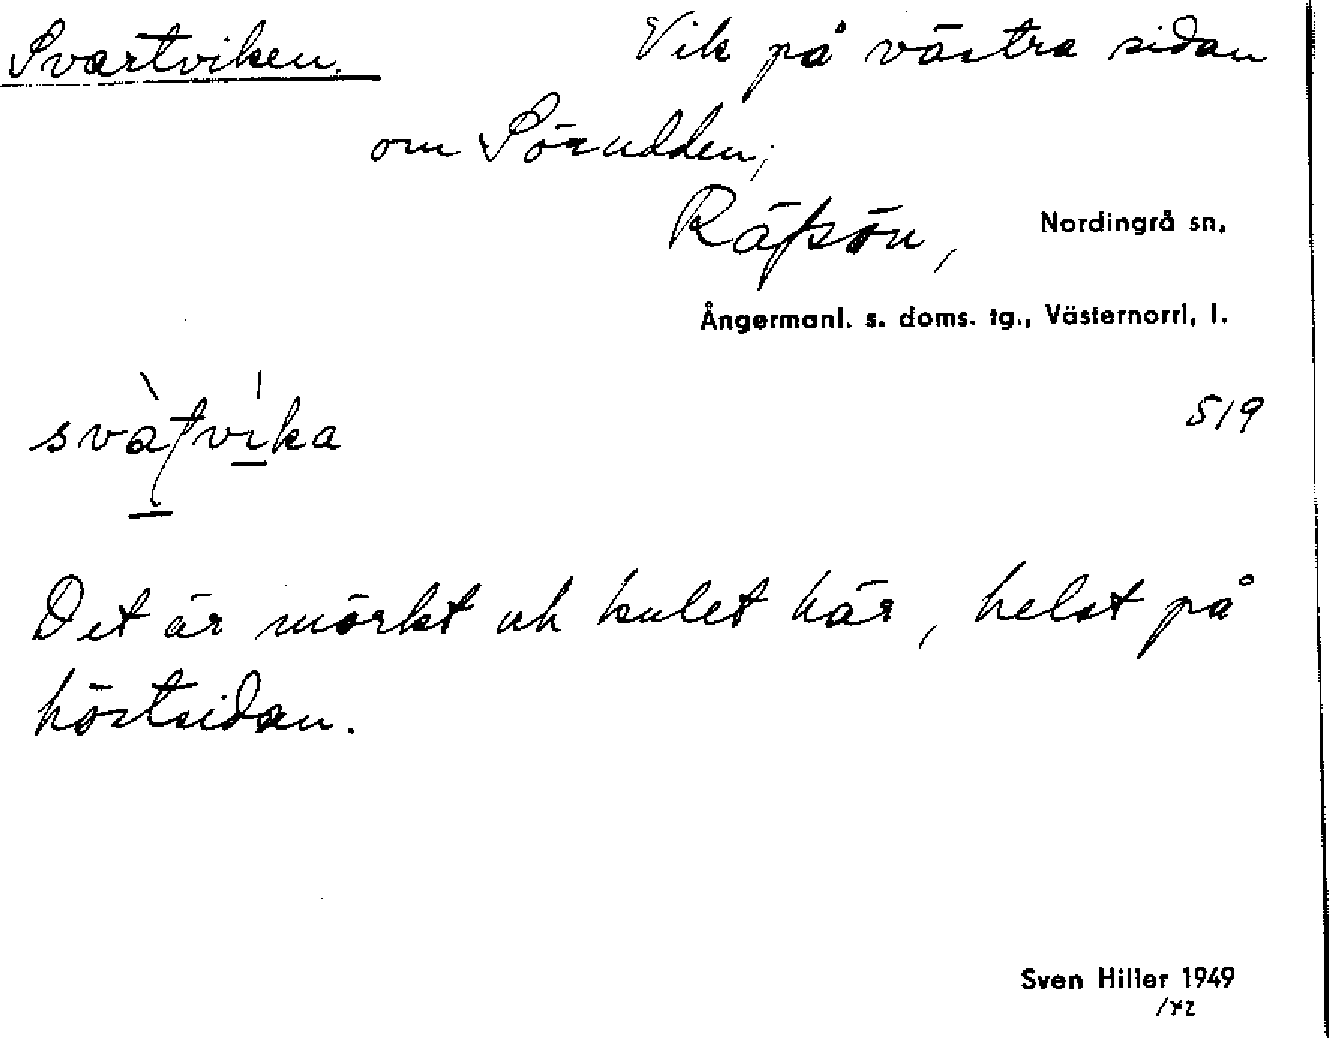 Svartviken. Vik på västra sidan
om Sörudden,
Räfsön, Nordingrå sn,
Ångermanl. s. doms. tg., Västernorrl, l.
519
Det är mörkt och kulet här, helst på
höstsidan.
Sven Hiller 1949